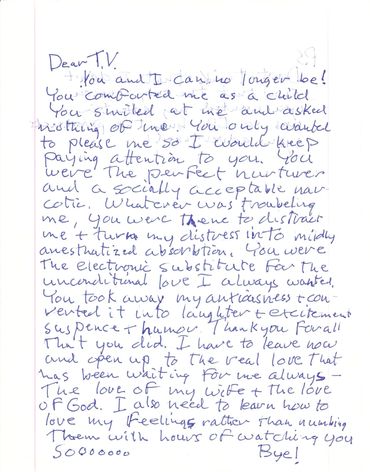 Dear T.V.
You and I can no longer be!
You comforted me as a child
You smiled at me and asked
nothing of me. You only wanted
to please me so I would keep
paying attention to you. You
were the perfect nurturer
and a socially acceptable nar-
cotic. Whatever was troubeling
me, you were there to distract
me + turn my distress into mildly
anesthatized absorbtion. You were
the electronic substitute for the
unconditional love I always wanted.
You took away my anxiousness + con-
verted it into laughter + excitement
suspence + humor. Thank you for all
that you did. I have to leave now
and open up to the real love that
has been waiting for me always -
The love of my wife + the love
of God. I also need to learn how to
love my feelings rather than numbing
them with hours of watching you
Sooooooo Bye!